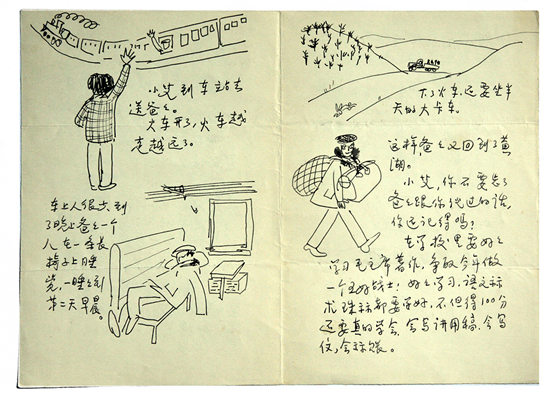 小艾到车站去
送爸爸。
火车开了，火车越
走越远了。
车上人很少，到
了晚上爸爸一个
人在一条长
椅子上睡
觉，一睡睡到
第二天早晨。
下了火车还要坐半
天的大卡车。
这样，爸爸又回到了黄
湖。
小艾，你不要忘了
爸爸跟你说过的话，
你还记得吗？
在学校里要好好
学习毛主席著作，争取今年做
一个五好战士！好好学习，语文
算术都要学好，不但得100分
还要真的学会，会写讲用稿，会写
信，会算账。